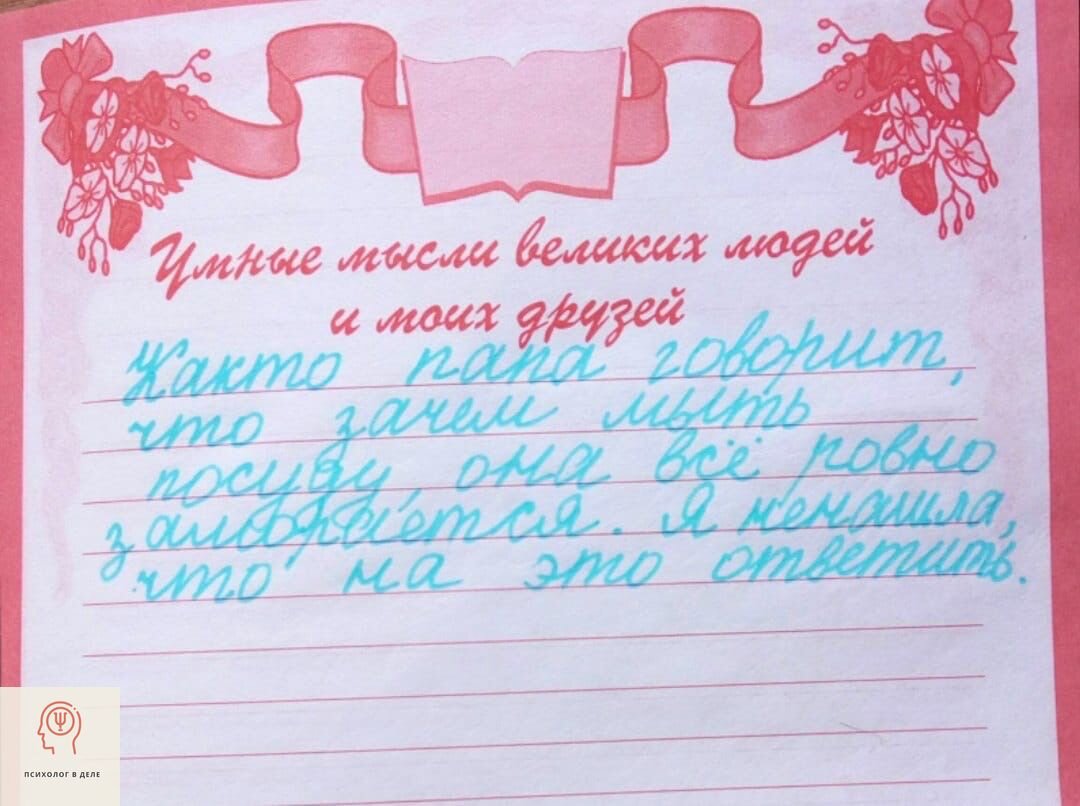 Умные мысли великих людей
и моих друзей
Както папа говорит,
что зачем мыть
посуду, она всё ровно
замарается. Я ненашла,
что на это ответить.
ПСИХОЛОГ В ДЕЛЕ